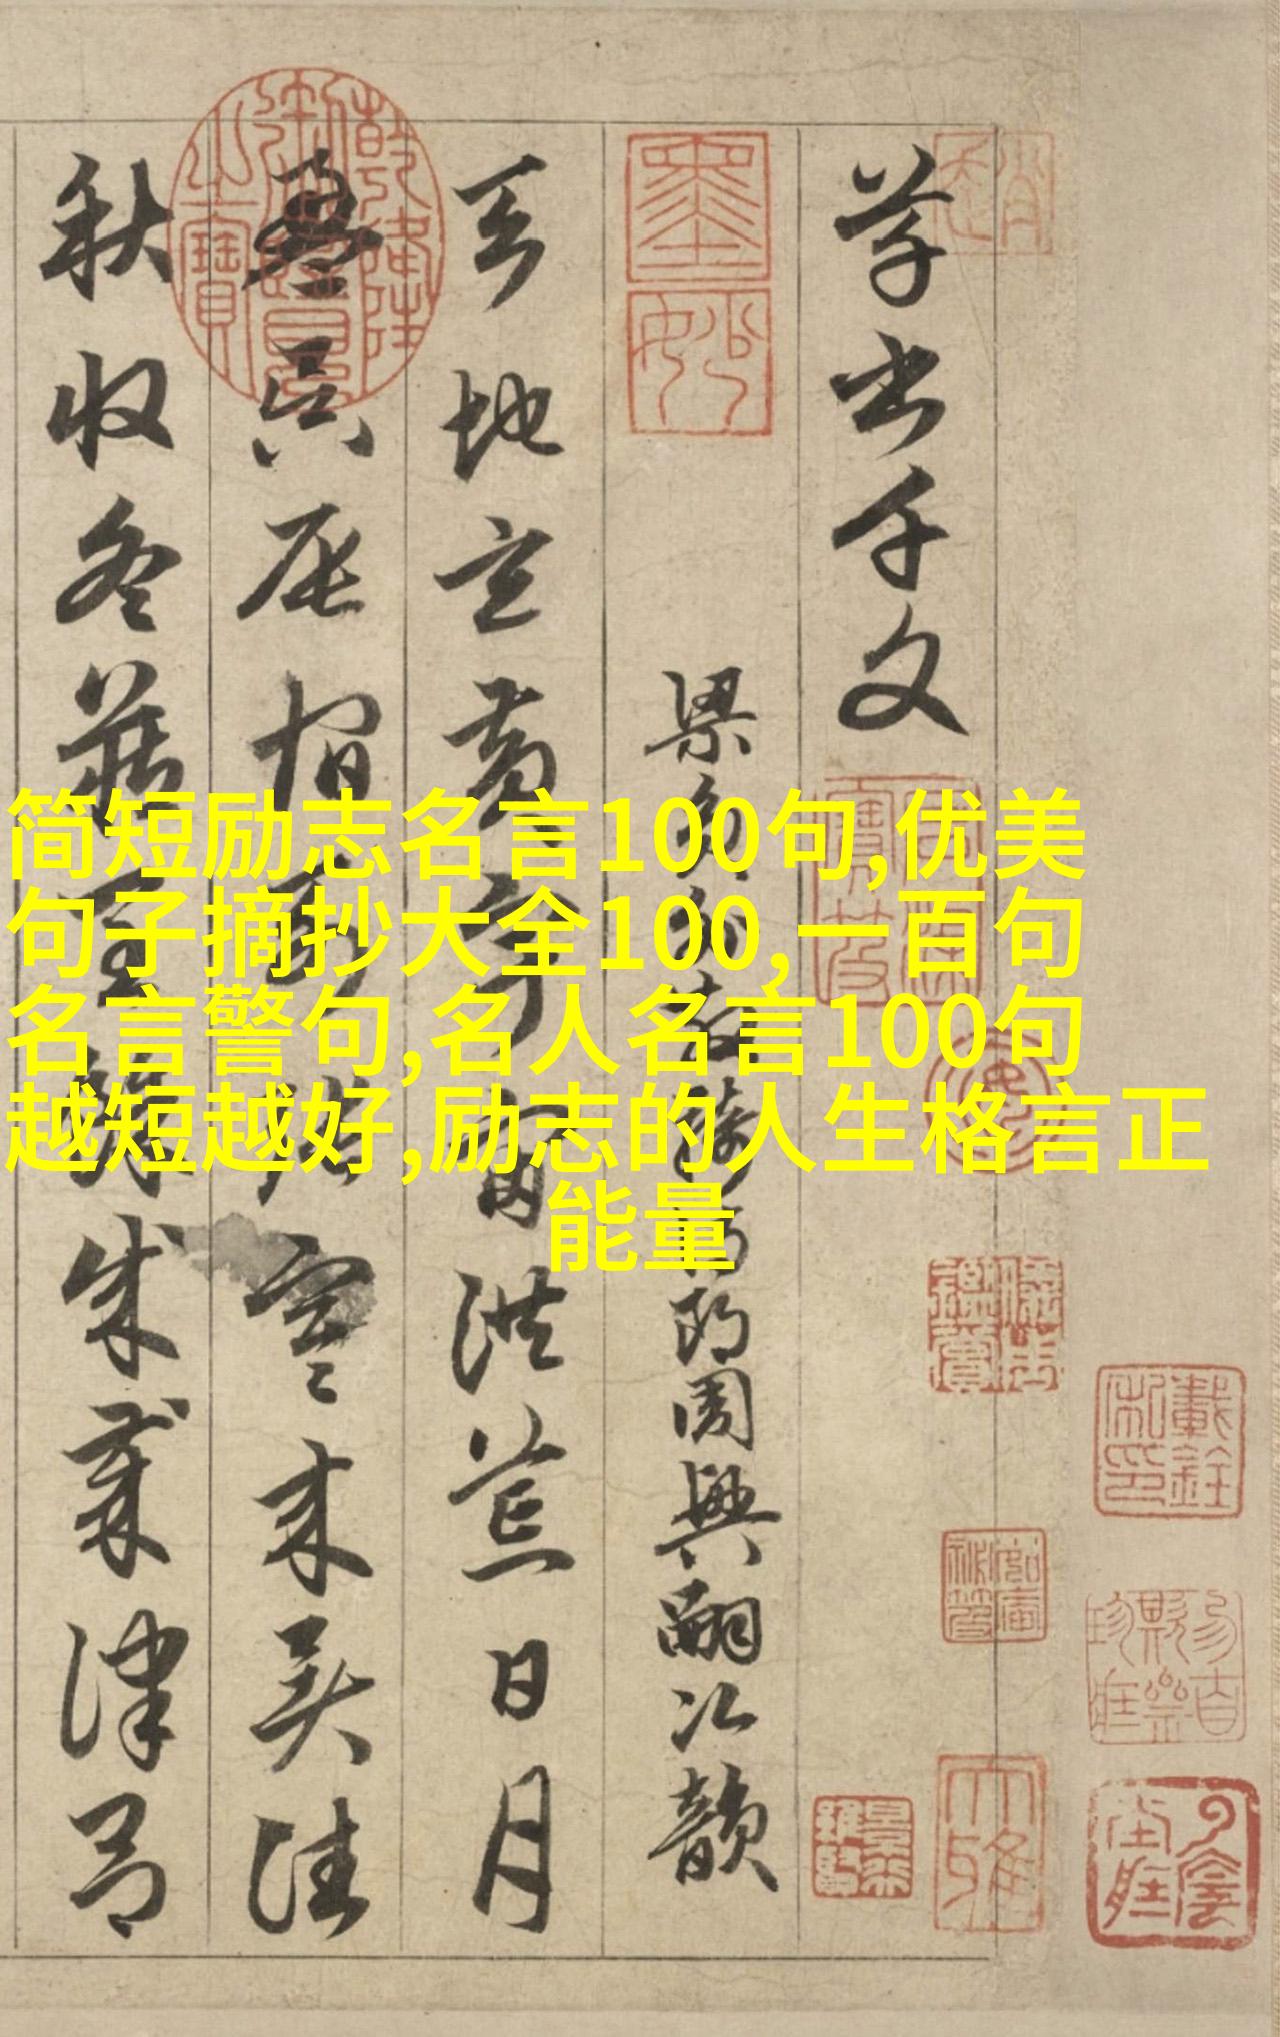 草書千文
梁員外散騎侍郎周興嗣次韻
天地玄黄宇宙洪荒日月
盈昃辰宿列張寒来暑往
秋收冬藏閏餘成歲律吕
墨妙
乾隆御覽之寶
大雅
简短励志名言100句,优美
句子摘抄大全100,一百句
名言警句,名人名言100句
越短越好,励志的人生格言正
能量